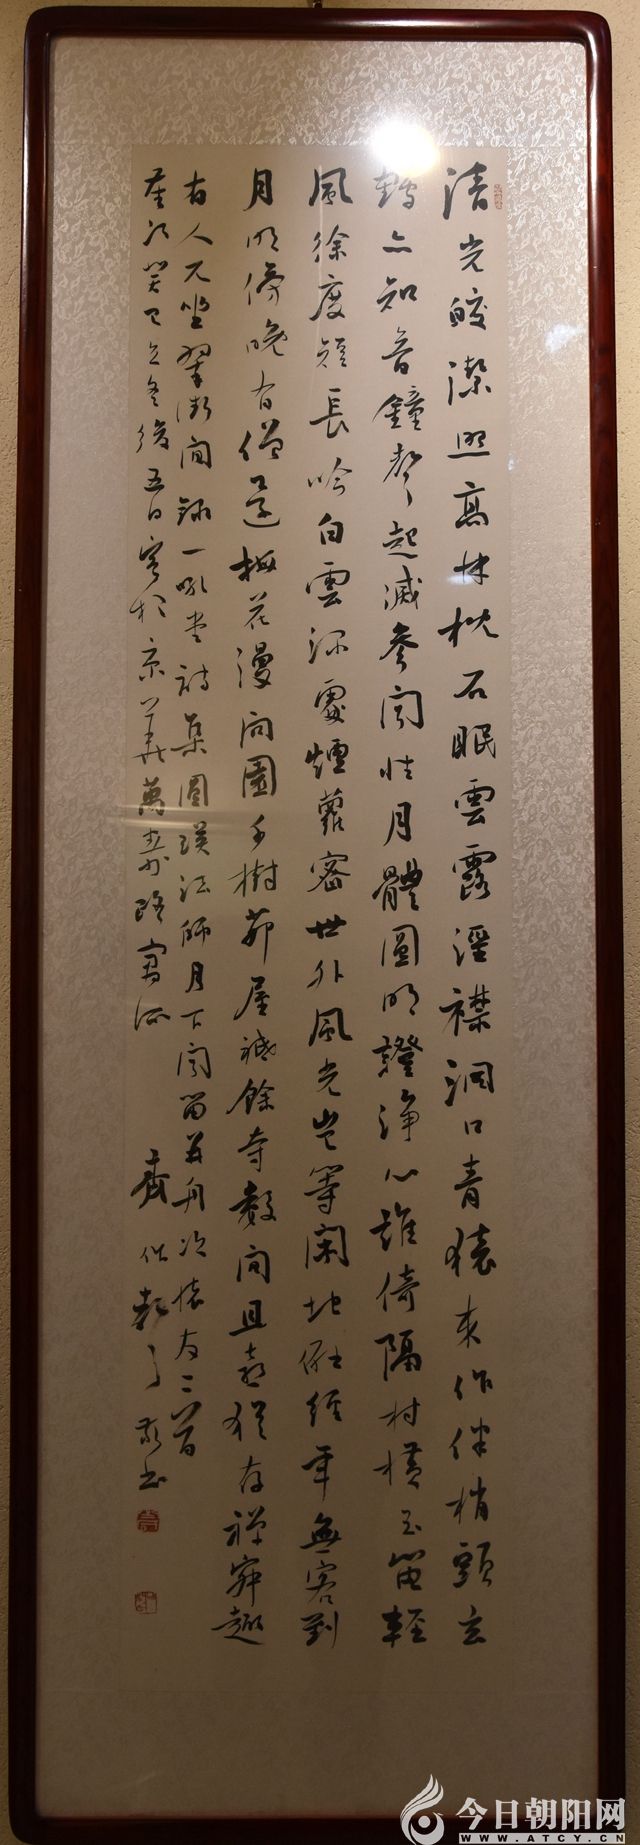 清光皎潔照高林枕石眠雲露溼襟洞口青猿來作伴梢頭玄
鶴亦知音鐘聲起滅參聞性月體圓明證淨心誰倚隔村橫玉笛輕
風徐度短長吟白雲深處煙蘿密世外風光豈等閑地僻經年無客到
月明傍晚有僧還梅花漫向園千樹茆屋祇餘寺數間且喜猶存禪寂趣
古人兀坐翠微間錄一吼堂詩集圓瑛法師月下聞笛并舟次懷友二首
歲次癸巳立冬後五日寫於京華萬壽路寓所
齊 敬書
今日朝阳网
WWW.ATCY.CN